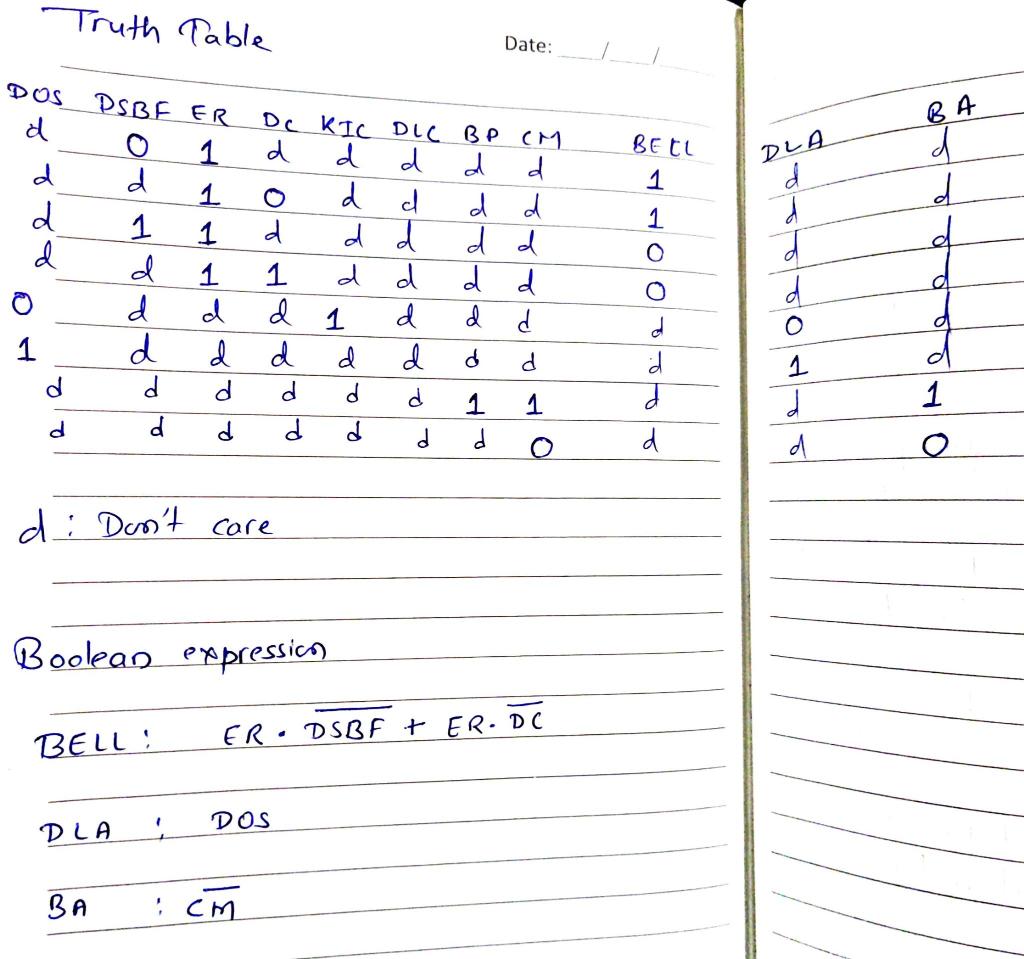 Truth Table
Date: __/__/__
DOS DSBF ER DC KIC DLC BP CM BELL DLA BA
d 0 1 d d d d d 1 d d
d d 1 0 d d d d 1 d d
d 1 1 d d d d d 0 d d
d d 1 1 d d d d 0 d d
0 d d d 1 d d d d 0 d
1 d d d d d d d d 1 d
d d d d d d 1 1 d d 1
d d d d d d d 0 d d 0
d : Don't care
Boolean expression
BELL : ER . D̅S̅B̅F̅ + ER. D̅C̅
DLA : DOS
BA : C̅M̅